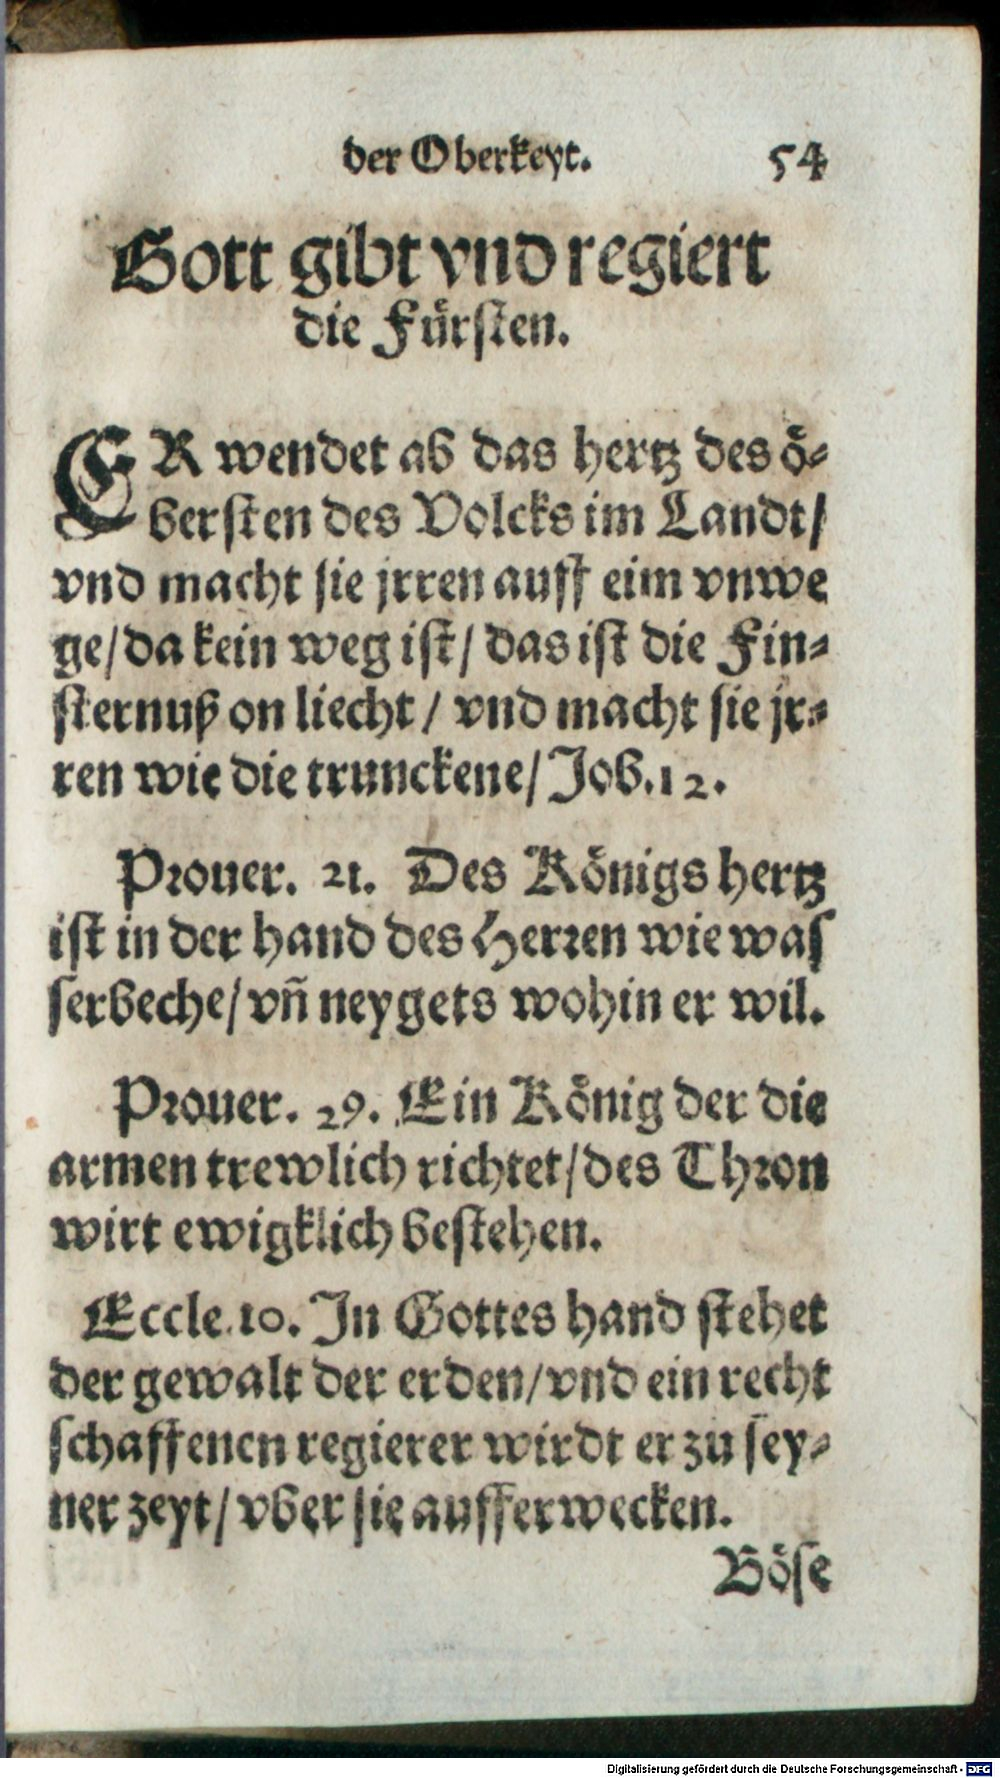 der Oberkeyt. 54
Gott gibt vnd regiert
die Fürsten.
ER wendet ab das hertz des ö-
bersten des Volcks im Landt/
vnd macht sie jrren auff eim vnwe
ge/da kein weg ist/ das ist die Fin-
sternuß on liecht / vnd macht sie jr-
ren wie die trunckene/ Job.12.
Prouer. 21. Des Königs hertz
ist in der hand des Herren wie was
serbeche/ vñ neygets wohin er wil.
Prouer. 29. Ein König der die
armen trewlich richtet/des Thron
wirt ewigklich bestehen.
Eccle.10. In Gottes hand stehet
der gewalt der erden/vnd ein recht
schaffenen regierer wirdt er zu sey-
ner zeyt/ vber sie aufferwecken.
Böse
Digitalisierung gefördert durch die Deutsche Forschungsgemeinschaft - DFG